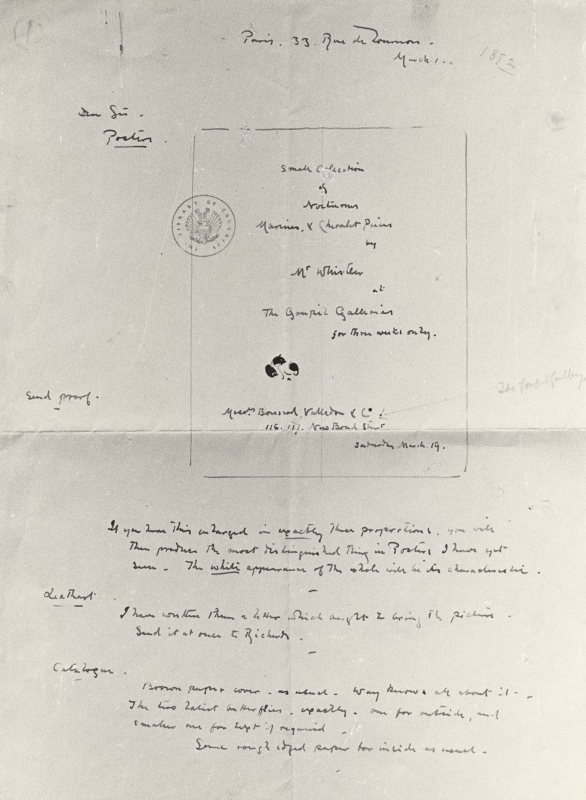 Paris. 33. Rue de Tournon.
March 1..
1892
Dear Sir.
Posters.
Small Collection
of
Nocturnes
Marines, & Chevalet Pieces
by
Mr Whistler
at
The Goupil Galleries
for three weeks only.
LIBRARY OF CONGRESS
Send proof.
The Goupil Gallery
Messrs Boussod, Valladon & Co.
116. 117. New Bond Street
Saturday March. 19.
If you have this enlarged in exactly these proportions, you will
then produce the most distinguished thing in Posters I have yet
seen. The white appearance of the whole will be its characteristic.
I have written them a letter which ought to bring the picture.
Send it at once to Richards.
Catalogue.
Brown paper cover. as usual. Way knows all about it.
The two latest butterflies. exactly. one for outside, and
smaller one for text if required
Some rough edged paper for inside as usual.